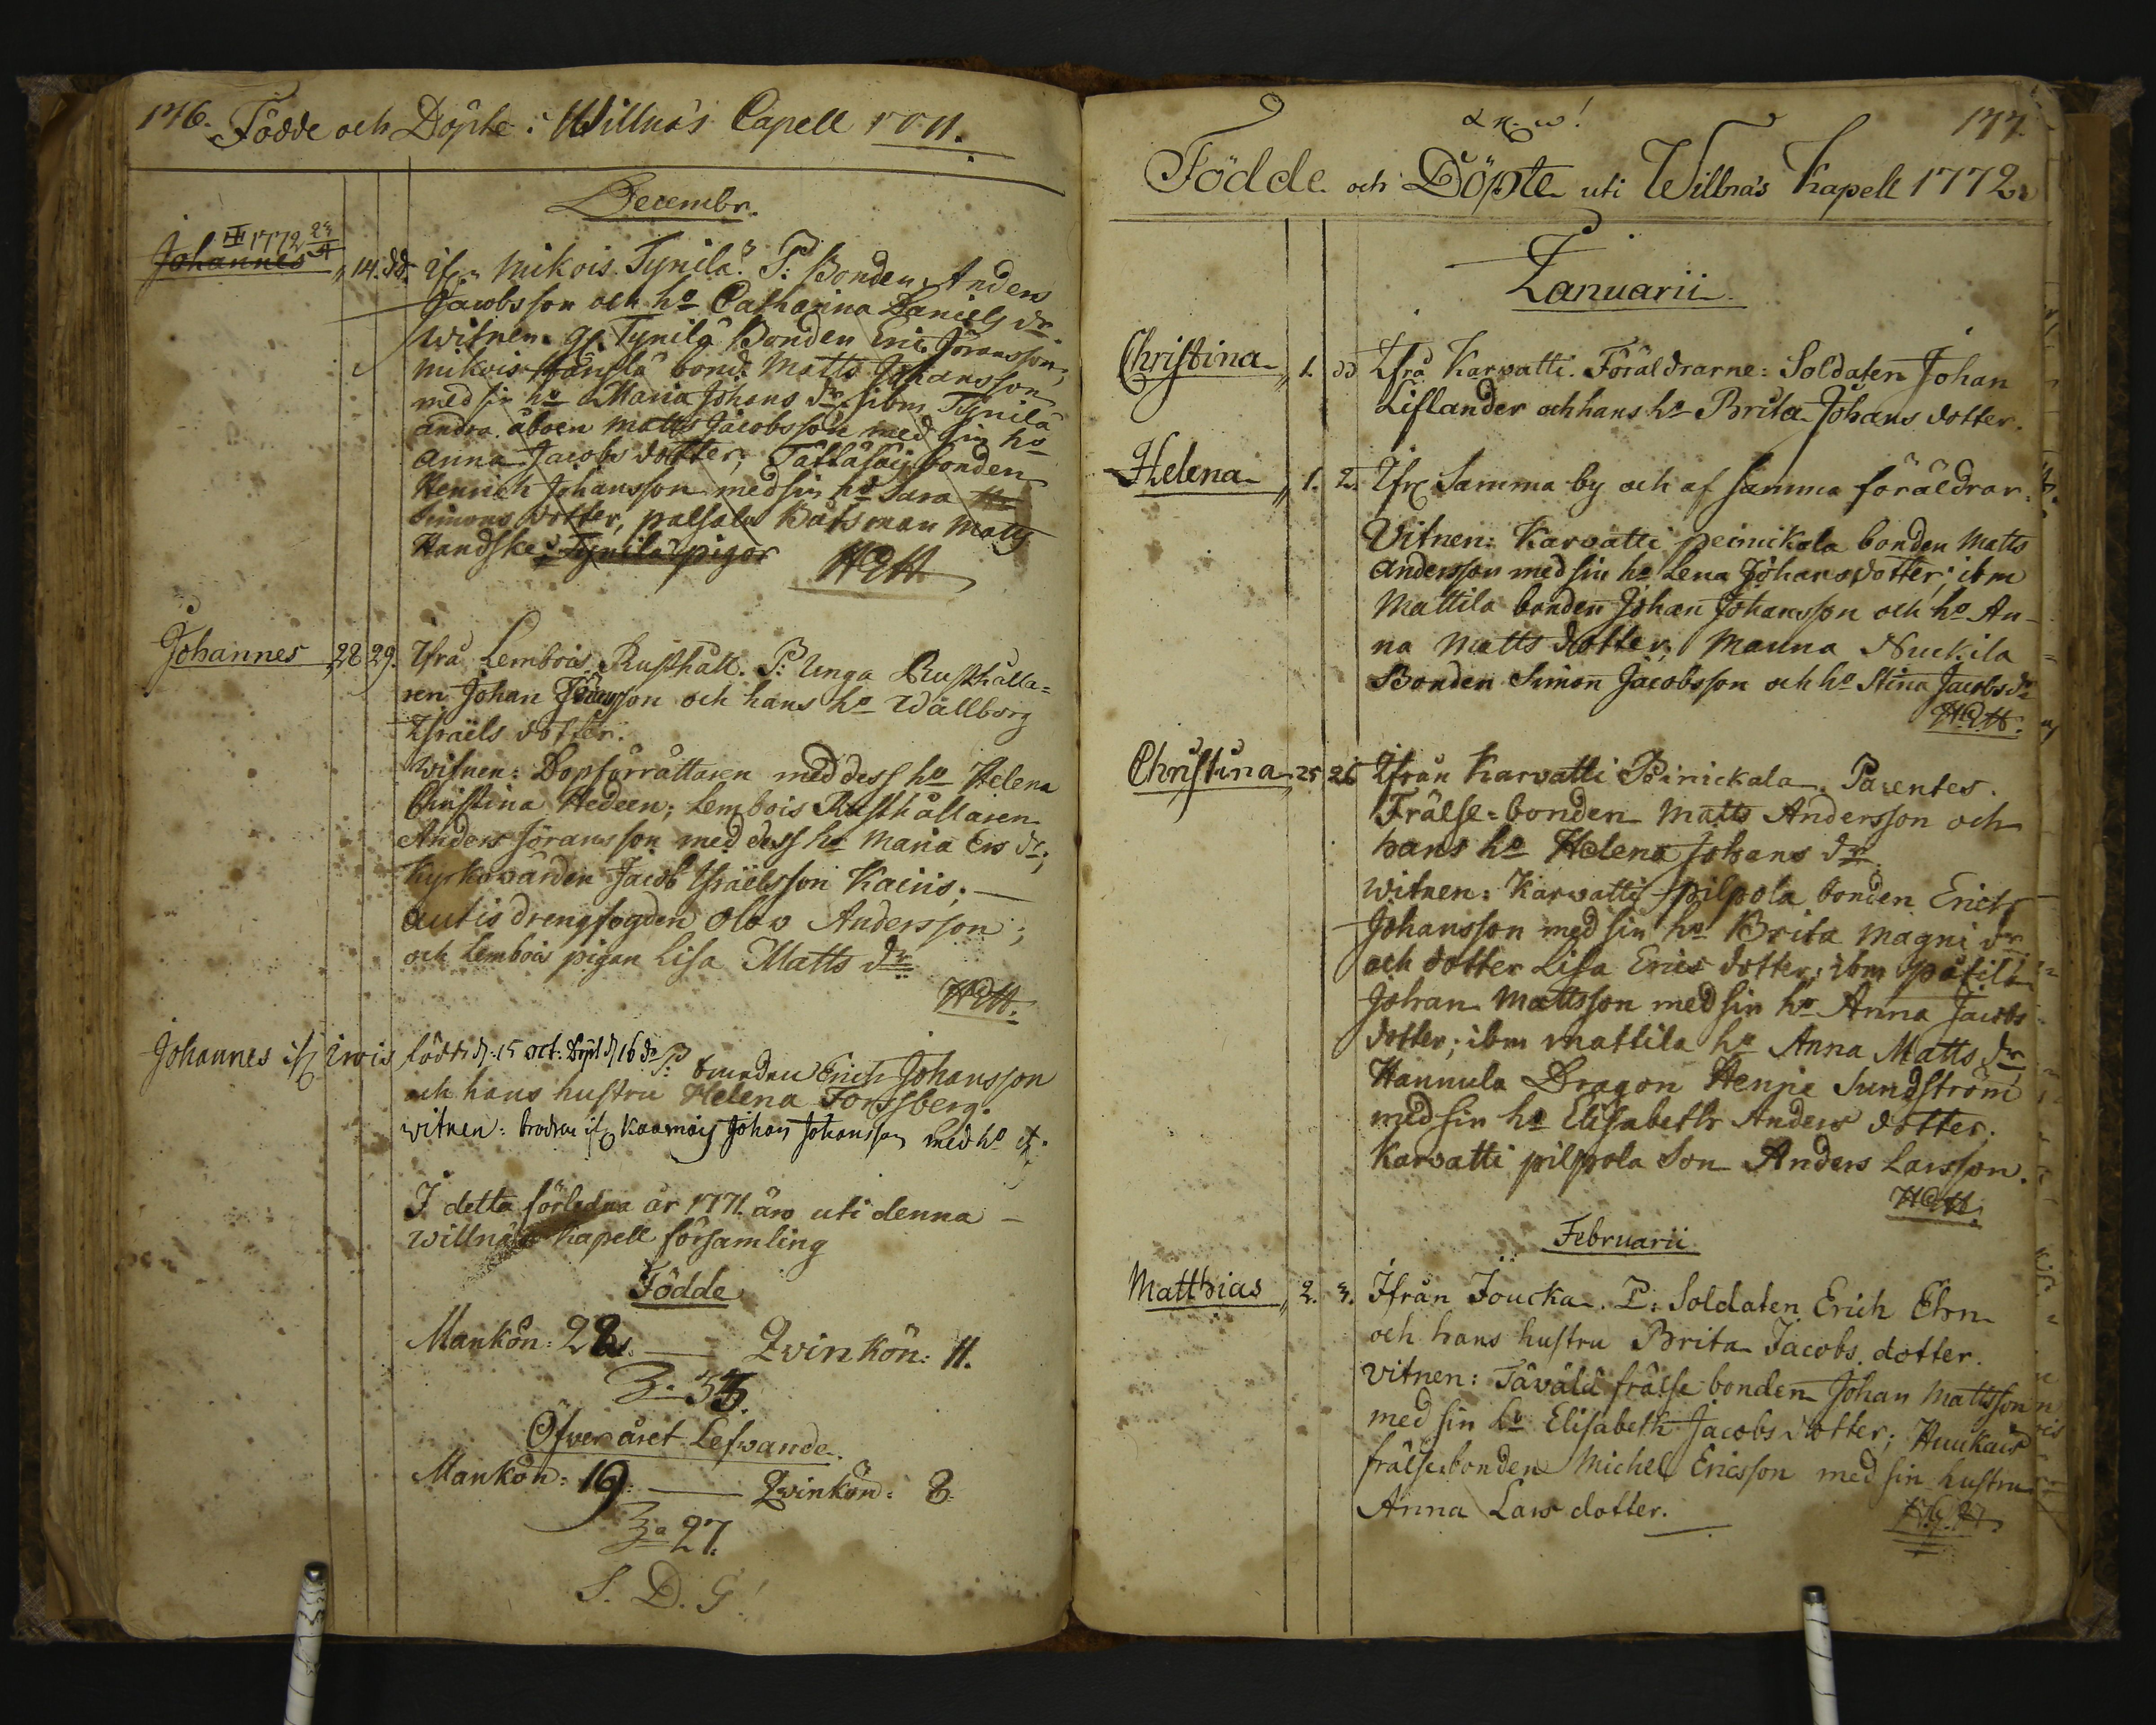 176. Födde och Döpte i Willnäs Capell 1771.
Decembr.
1772 23/4
Johannes 14. dd. ifr. Mikois Tynilä. P: Bonden Anders
Jacobsson och ho Catharina Daniels dr
Witnen. gl. Tynilä Bonden Eric Jöransson,
Mikois bond. Matts Johansson
med sin ho Maria Johans dr. ibm Tynilä
andra åboen Matts Jacobsson med sin ho
Anna Jacobs dotter, bonden
Henrich Johansson med sin ho Sara
Simons dotter, palsala Båtsman Matts
Handske, Tynilä pigor HEH
Johannes 28 29. Ifrå Lembois Rusthåll. P: Unga Rusthålla=
ren Johan Jöransson och hans ho Wallborg
Israels dotter.
Witnen: Dopförrättaren med dess ho Helena
Christina Hedeen; Lembois Rusthållaren
Anders Jöransson med dess ho Maria Ers dr;
Kyrkovärden Jacob Israelsson Kainis; —
Autis drengfogden Olov Andersson;
och Lembois pigan Lisa Matts dr
HEH.
Johannes ifr Irois född d. 15 oct: döpt d 16 do P: bonden Erich Johansson
och hans hustru Helena Forssberg.
witnen: brodren ifr Kaamois Johan Johansson med ho etc.
I detta förledna år 1771 äro uti denna —
Willnäs Kapell församling
Födde
Mankön: 22. — Qvinkön: 11.
33.
Öfver året Lefvande.
Mankön: 19. — Qvinkön: 8.
27.
S. D. G!
177.
α κ. ω!
Födde och Döpte uti Willnäs Kapell 1772.
Januarii
Christina 1. dd Ifrå Karvatti. Föräldrarne: Soldaten Johan
Liflander och hans ho Brita Johans dotter.
Helena 1. 2. Ifr Samma by och af samma föräldrar.
Vitnen: Karvatti peinikola bonden Matts
Andersson med sin ho Lena Johansdotter; ibm
Mattila bonden Johan Johansson och ho An-
na Matts dotter; Manna Nuckila
Bonden Simon Jacobsson och ho Stina Jacobs dr
HEH.
Christina 25 26 Ifrån Karvatti Peinickala. Parentes.
Frälse-bonden Matts Andersson och
hans ho Helena Johans dr.
Witnen: Karvatti pilpola bonden Erich
Johansson med sin ho Brita Magni dr
och dotter Lisa Erics dotter; ibm påfila
Johan Mattsson med sin ho Anna Jacobs
dotter; ibm Mattila ho Anna Matts dr
Hannula Dragon Henric Sundström
med sin ho Elisabeth Anders dotter;
Karvatti pilpola Son Anders Larsson.
HEH.
Februarii
Matthias 2. 3. Ifrån Joucka. P: Soldaten Erich Ehrn
och hans hustru Brita Jacobs. dotter.
Vitnen: Tävälä frälse bonden Johan Mattsson
med sin ho Elisabeth Jacobs dotter; Huukais
frälse bonden Michel Ericsson med sin hustru
Anna Lars dotter.
HEH